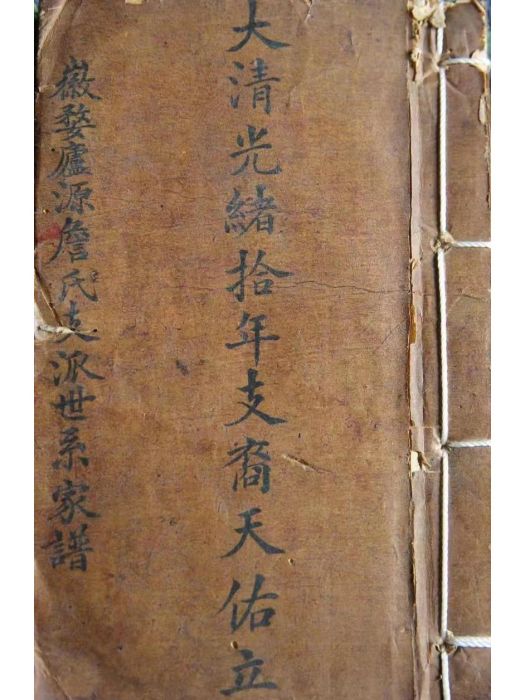 大清光緒拾年支裔天佑立
徽婺廬源詹氏支派世系家譜